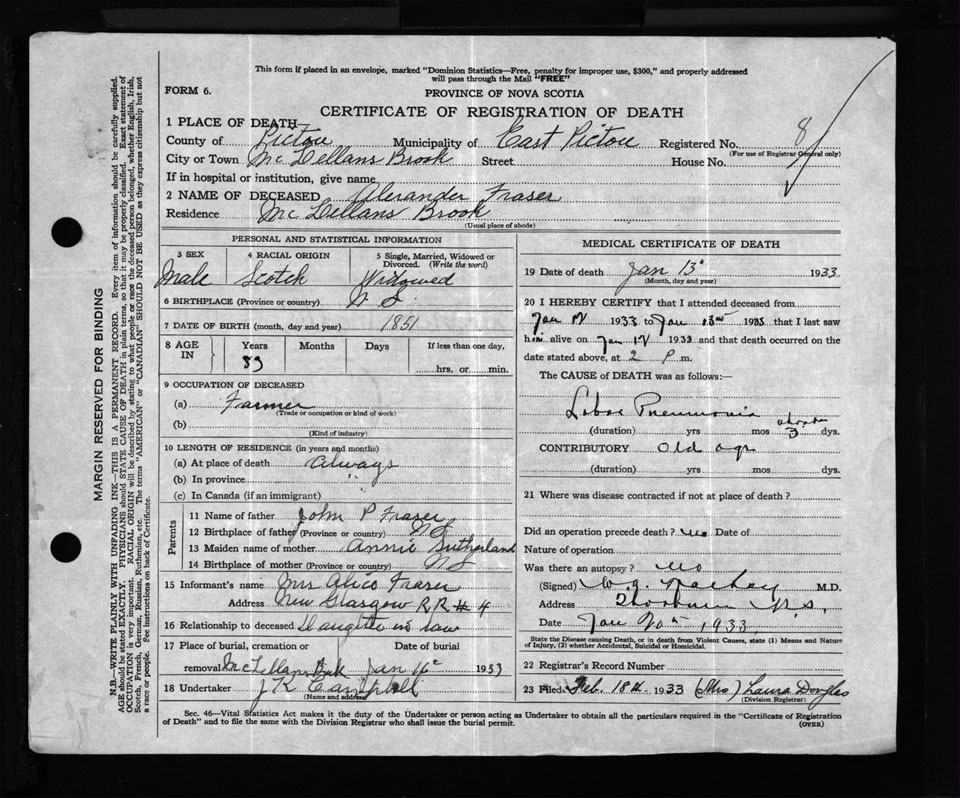 This form if placed in an envelope, marked "Dominion Statistics—Free, penalty for improper use, $300," and properly addressed
will pass through the Mail "FREE"
FORM 6.
PROVINCE OF NOVA SCOTIA
CERTIFICATE OF REGISTRATION OF DEATH
1 PLACE OF DEATH
County of Pictou Municipality of East Pictou Registered No. 8
(For use of Registrar General only)
City or Town McLellans Brook Street House No.
If in hospital or institution, give name
2 NAME OF DECEASED Alexander Fraser
Residence McLellans Brook
(Usual place of abode)
MARGIN RESERVED FOR BINDING
N.B.—WRITE PLAINLY WITH UNFADING INK—THIS IS A PERMANENT RECORD. Every item of information should be carefully supplied.
AGE should be stated EXACTLY. PHYSICIANS should STATE CAUSE OF DEATH in plain terms, so that it may be properly classified. Exact statement of
OCCUPATION is very important. RACIAL ORIGIN will be described by stating to what people or race the deceased person belonged, whether English, Irish,
Scotch, French, German, Russian, Ruthenian, etc. The terms "AMERICAN" or "CANADIAN" SHOULD NOT BE USED as they express citizenship but not
a race or people. See instructions on back of Certificate.
PERSONAL AND STATISTICAL INFORMATION
3 SEX
Male
4 RACIAL ORIGIN
Scotch
5 Single, Married, Widowed or
Divorced. (Write the word)
Widowed
6 BIRTHPLACE (Province or country) N S
7 DATE OF BIRTH (month, day and year) 1851
8 AGE IN
Years Months Days If less than one day,
83 hrs. or min.
9 OCCUPATION OF DECEASED
(a) Farmer
(Trade or occupation or kind of work)
(b)
(Kind of industry)
10 LENGTH OF RESIDENCE (in years and months)
(a) At place of death always
(b) In province "
(c) In Canada (if an immigrant)
Parents
11 Name of father John P Fraser
12 Birthplace of father (Province or country) N S
13 Maiden name of mother Annie Sutherland
14 Birthplace of mother (Province or country) N S
15 Informant's name Mrs Alico Fraser
Address New Glasgow RR # 4
16 Relationship to deceased Daughter in law
17 Place of burial, cremation or Date of burial
removal McLellans Bk Jan 1933
18 Undertaker J K Campbell
(Name and address)
MEDICAL CERTIFICATE OF DEATH
19 Date of death Jan 13 1933
(Month, day and year)
20 I HEREBY CERTIFY that I attended deceased from
Jan 1933 to Jan 13 1933 that I last saw
him alive on Jan 1933 and that death occurred on the
date stated above, at 2 P m.
The CAUSE of DEATH was as follows:—
Lobar Pneumonia
(duration) yrs mos 3 dys.
CONTRIBUTORY Old age
(duration) yrs mos dys.
21 Where was disease contracted if not at place of death?
Did an operation precede death? no Date of
Nature of operation
Was there an autopsy? no
(Signed) W.G. M.D.
Address N.S.
Date Jan 20th 1933
State the Disease causing Death, or in death from Violent Causes, state (1) Means and Nature
of Injury, (2) whether Accidental, Suicidal or Homicidal.
22 Registrar's Record Number
23 Filed Feb. 18th 1933 (Mrs) Laura Douglas
(Division Registrar)
Sec. 46—Vital Statistics Act makes it the duty of the Undertaker or person acting as Undertaker to obtain all the particulars required in the "Certificate of Registration
of Death" and to file the same with the Division Registrar who shall issue the burial permit.
(OVER)